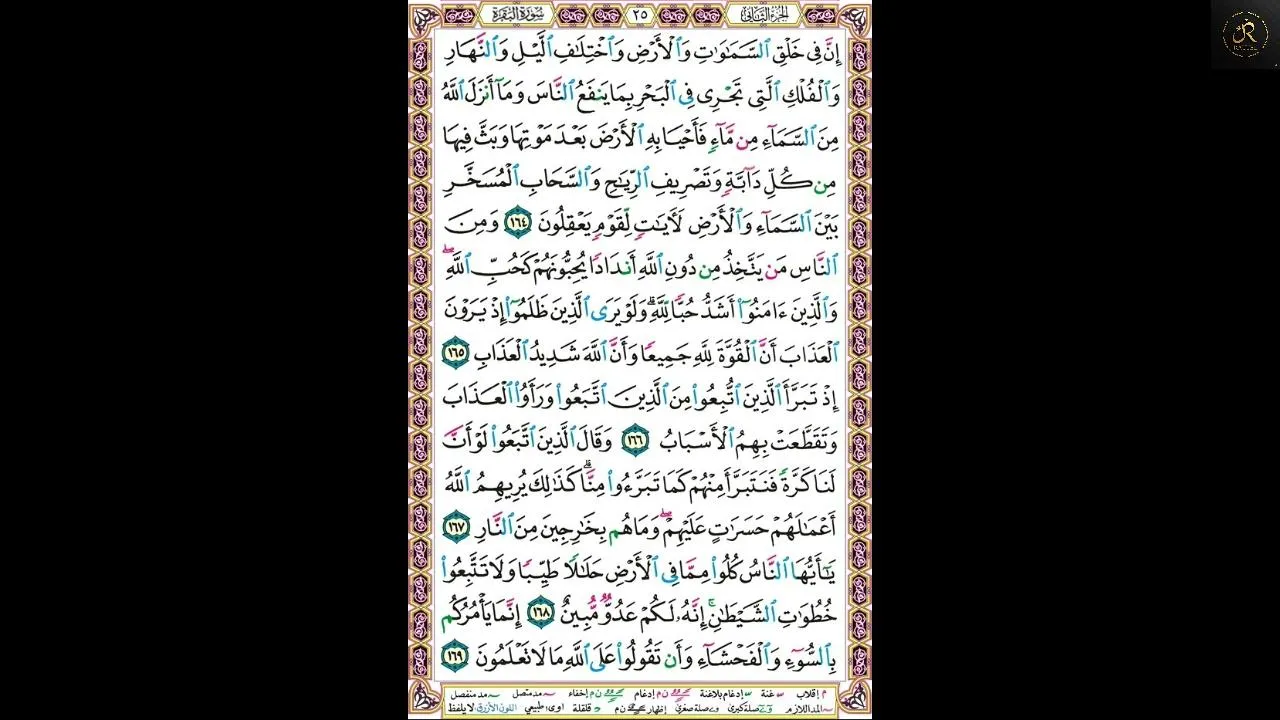 الجزء الثاني ٢٥ سورة البقرة
إِنَّ فِي خَلْقِ ٱلسَّمَٰوَٰتِ وَٱلْأَرْضِ وَٱخْتِلَٰفِ ٱلَّيْلِ وَٱلنَّهَارِ
وَٱلْفُلْكِ ٱلَّتِي تَجْرِي فِي ٱلْبَحْرِ بِمَا يَنفَعُ ٱلنَّاسَ وَمَآ أَنزَلَ ٱللَّهُ
مِنَ ٱلسَّمَآءِ مِن مَّآءٍ فَأَحْيَا بِهِ ٱلْأَرْضَ بَعْدَ مَوْتِهَا وَبَثَّ فِيهَا
مِن كُلِّ دَآبَّةٍ وَتَصْرِيفِ ٱلرِّيَٰحِ وَٱلسَّحَابِ ٱلْمُسَخَّرِ
بَيْنَ ٱلسَّمَآءِ وَٱلْأَرْضِ لَءَايَٰتٍ لِّقَوْمٍ يَعْقِلُونَ ١٦٤ وَمِنَ
ٱلنَّاسِ مَن يَتَّخِذُ مِن دُونِ ٱللَّهِ أَندَادًا يُحِبُّونَهُمْ كَحُبِّ ٱللَّهِ ۖ
وَٱلَّذِينَ ءَامَنُوٓا۟ أَشَدُّ حُبًّا لِّلَّهِ ۗ وَلَوْ يَرَى ٱلَّذِينَ ظَلَمُوٓا۟ إِذْ يَرَوْنَ
ٱلْعَذَابَ أَنَّ ٱلْقُوَّةَ لِلَّهِ جَمِيعًا وَأَنَّ ٱللَّهَ شَدِيدُ ٱلْعَذَابِ ١٦٥
إِذْ تَبَرَّأَ ٱلَّذِينَ ٱتُّبِعُوا۟ مِنَ ٱلَّذِينَ ٱتَّبَعُوا۟ وَرَأَوُا۟ ٱلْعَذَابَ
وَتَقَطَّعَتْ بِهِمُ ٱلْأَسْبَابُ ١٦٦ وَقَالَ ٱلَّذِينَ ٱتَّبَعُوا۟ لَوْ أَنَّ
لَنَا كَرَّةً فَنَتَبَرَّأَ مِنْهُمْ كَمَا تَبَرَّءُوا۟ مِنَّا ۗ كَذَٰلِكَ يُرِيهِمُ ٱللَّهُ
أَعْمَٰلَهُمْ حَسَرَٰتٍ عَلَيْهِمْ ۖ وَمَا هُم بِخَٰرِجِينَ مِنَ ٱلنَّارِ ١٦٧
يَٰٓأَيُّهَا ٱلنَّاسُ كُلُوا۟ مِمَّا فِي ٱلْأَرْضِ حَلَٰلًا طَيِّبًا وَلَا تَتَّبِعُوا۟
خُطُوَٰتِ ٱلشَّيْطَٰنِ ۚ إِنَّهُۥ لَكُمْ عَدُوٌّ مُّبِينٌ ١٦٨ إِنَّمَا يَأْمُرُكُم
بِٱلسُّوٓءِ وَٱلْفَحْشَآءِ وَأَن تَقُولُوا۟ عَلَى ٱللَّهِ مَا لَا تَعْلَمُونَ ١٦٩
م إقلاب غنة إدغام بلاغنة ن م إدغام ن م إخفاء مد متصل مد منفصل
المد اللازم صلة كبرى صلة صغرى إظهار ن م قلقلة اوى: طبيعي اللون الأزرق لا يلفظ